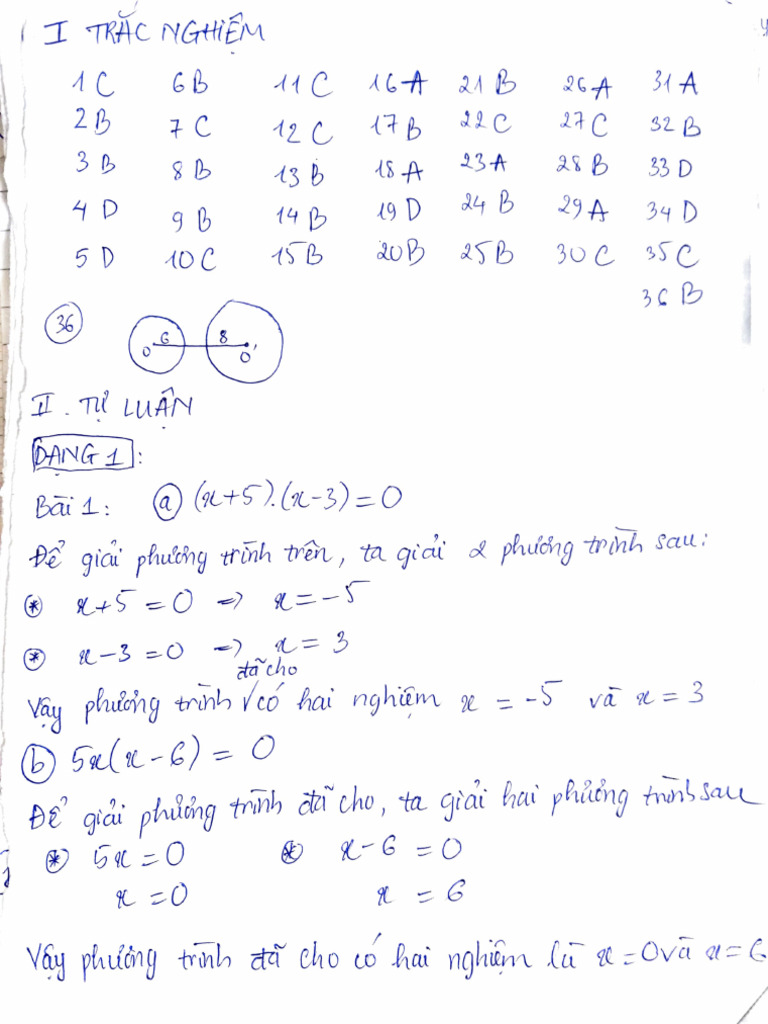 I TRẮC NGHIỆM
1C 6B 11C 16A 21B 26A 31A
2B 7C 12C 17B 22C 27C 32B
3B 8B 13B 18A 23A 28B 33D
4D 9B 14B 19D 24B 29A 34D
5D 10C 15B 20B 25B 30C 35C
36B
36 6 8
O O'
II. TỰ LUẬN
DẠNG 1:
Bài 1: a (x+5).(x-3)=0
Để giải phương trình trên, ta giải 2 phương trình sau:
* x+5=0 => x=-5
* x-3=0 => x=3
đã cho
Vậy phương trình √ có hai nghiệm x = -5 và x = 3
b 5x(x-6) = 0
Để giải phương trình đã cho, ta giải hai phương trình sau
* 5x=0 * x-6=0
x=0 x = 6
Vậy phương trình đã cho có hai nghiệm là x=0 và x=6